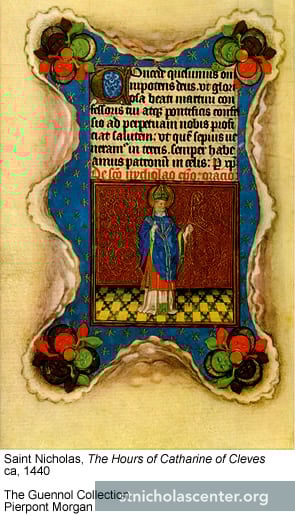 Concede quesumus om
nipotens deus. ut glori
osa beati martini con
fessoris tui atq; pontificis confes
sio ad perpetuam nobis profi
ciat salutem. ut que sepius ue
neram in terris. semper habe
amus patronū in celis: P xp
De sc̄o nycholao ep̄o: oracio
Saint Nicholas, The Hours of Catharine of Cleves
ca, 1440
The Guennol Collection
Pierpont Morgan
stnicholascenter.org